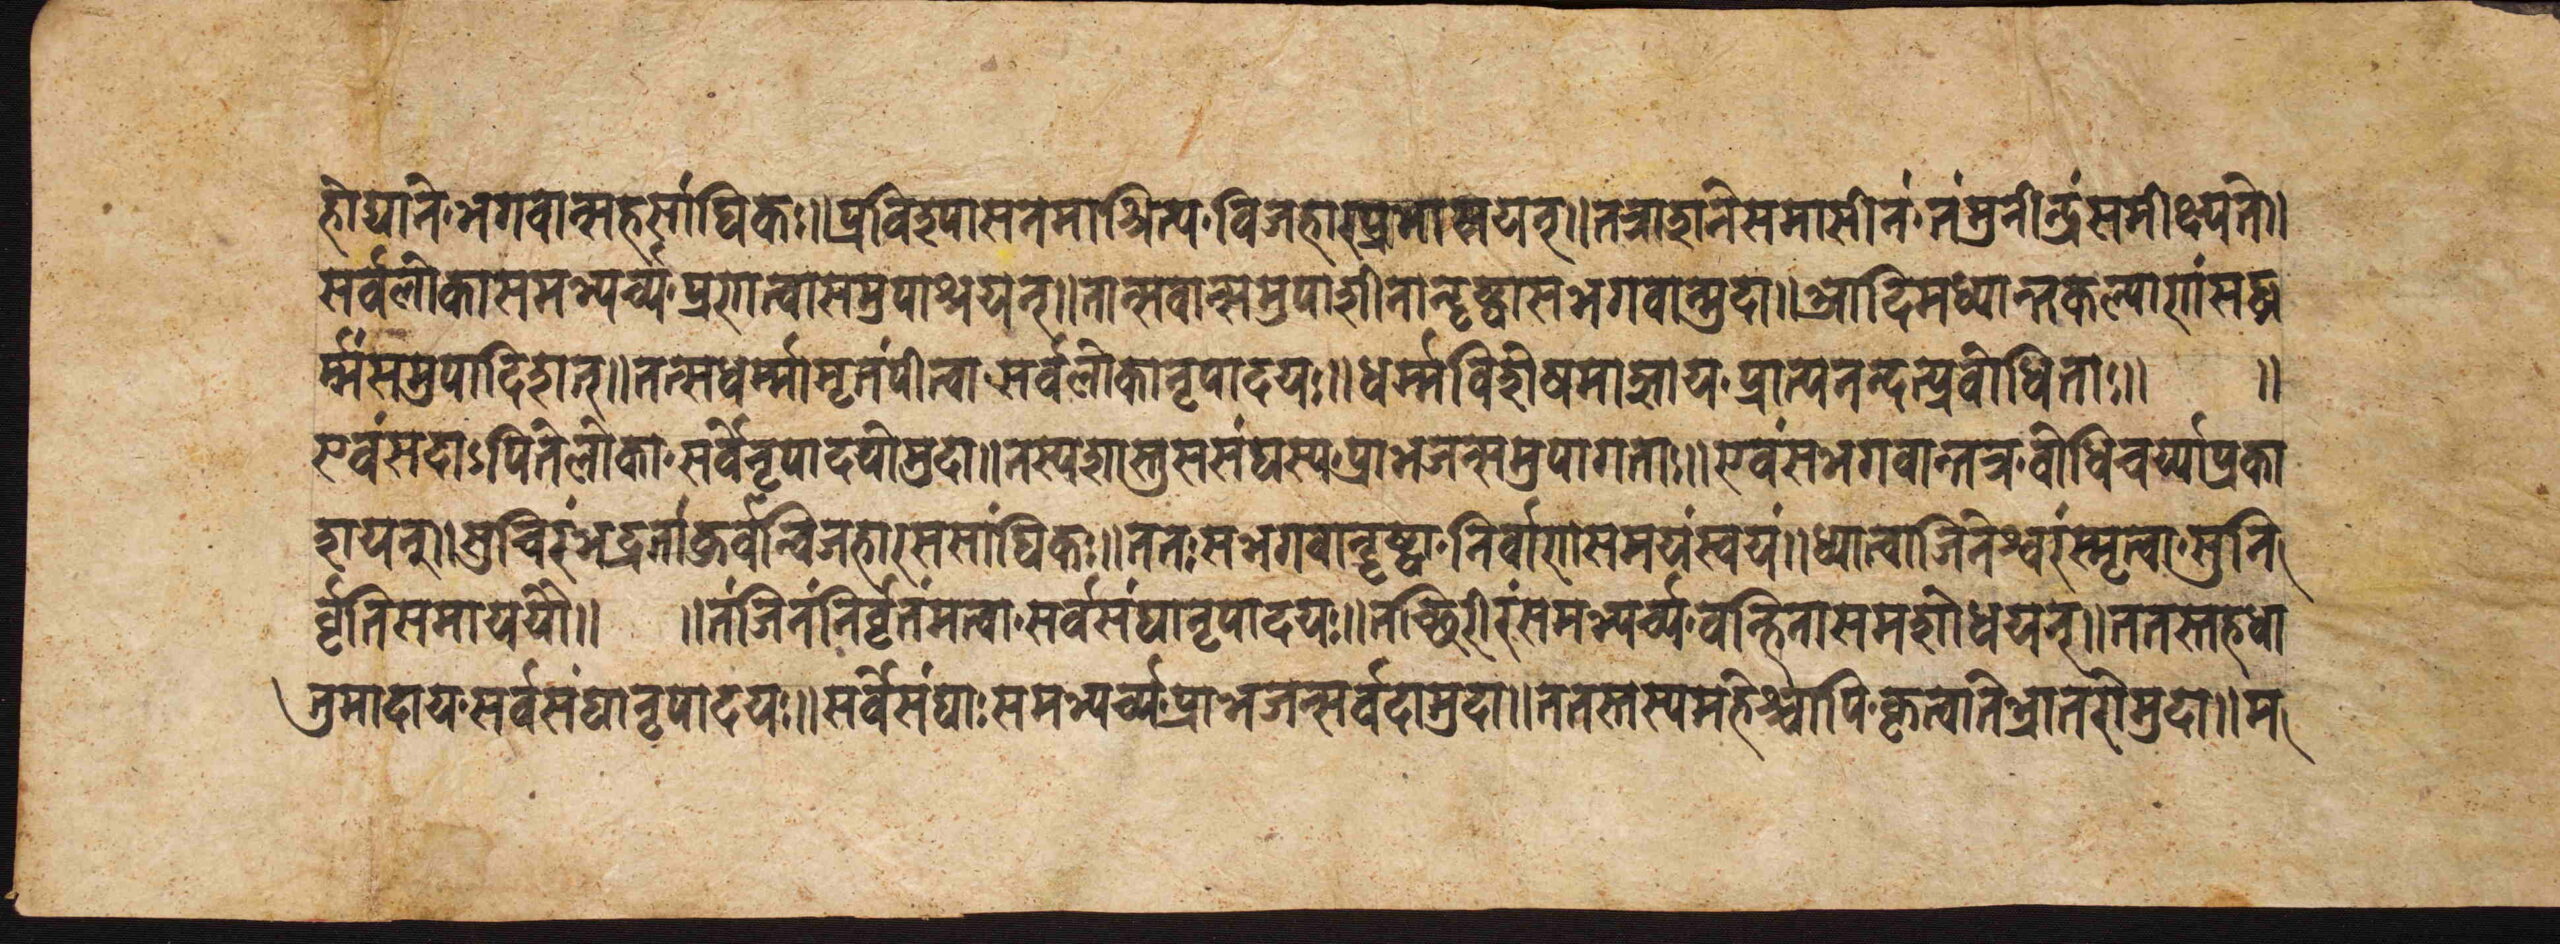 होद्याने भगवान्सहसांघिकः॥ प्रविश्यासनमाश्रित्य विजहार प्रभासयन्॥ तत्राशने समासीनं तं मुनीन्द्रं समीक्ष्य ते॥
सर्वलोका समभ्यर्च्य प्रणत्वा समुपाश्रयन्॥ तान्सर्वान्समुपाशीनान्दृष्ट्वा स भगवान्मुदा॥ आदिमध्यान्तकल्याणं सद्ध
र्म्मं समुपादिशत्॥ तत्सधर्म्मामृतं पीत्वा सर्वलोका नृपादयः॥ धर्म्मविशेषमाज्ञाय प्रात्यनन्दत्प्रबोधिताः॥ ॥
एवं सदाऽपि ते लोका सर्वे नृपादयो मुदा॥ तस्य शास्तु ससंघस्य प्राभजन्समुपागताः॥ एवं स भगवान्तत्र बोधिचर्य्या प्रका
शयन्॥ सुचिरं भद्रतां कुर्वन्विजहार ससांघिकः॥ ततः स भगवान्दृष्ट्वा निर्वाणसमयं स्वयं॥ ध्यात्वा जिनेश्वरं स्मृत्वा सुनि
र्वृति समाययौ॥ ॥ तं जिनं निर्वृतं मत्वा सर्वसंघा नृपादयः॥ तच्छरिरं समभ्यर्च्य वन्हिना समशोधयन्॥ ततस्तद्धा
तुमादाय सर्वसंघा नृपादयः॥ सर्वे संघाः समभ्यर्च्य प्राभजन्सर्वदा मुदा॥ ततस्तस्य महेश्चापि कृत्वा ते भ्रातरो मुदा॥ म